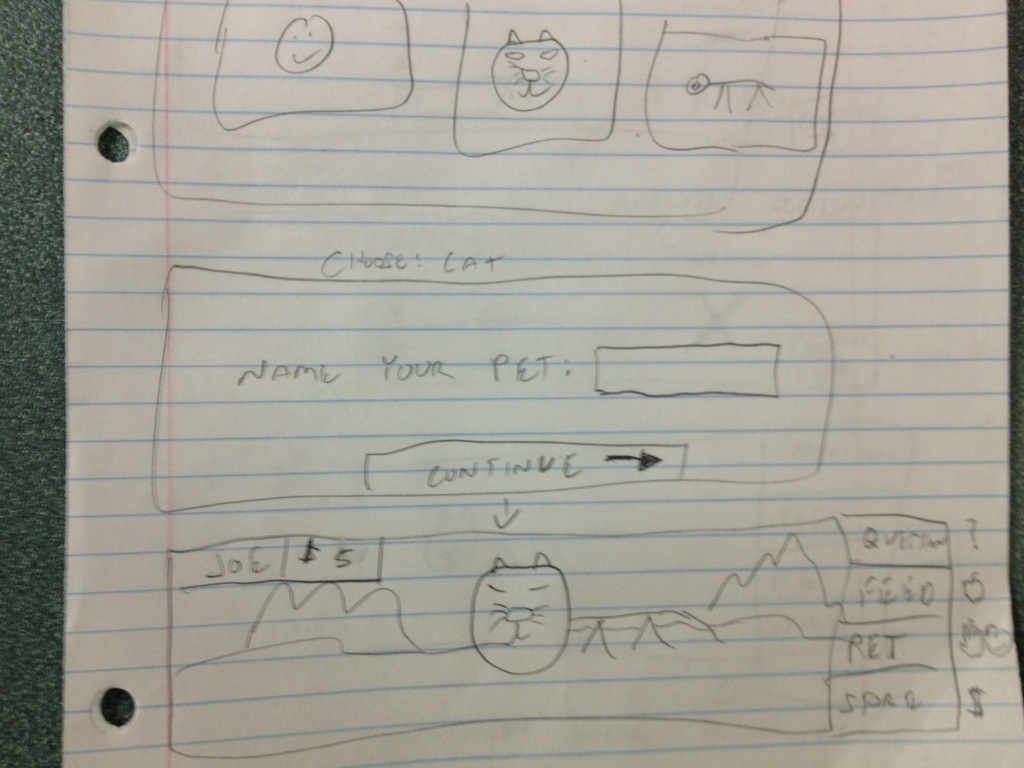 CHOOSE: CAT
NAME YOUR PET:
CONTINUE →
JOE $5
QUESTION ?
FEED
PET
$